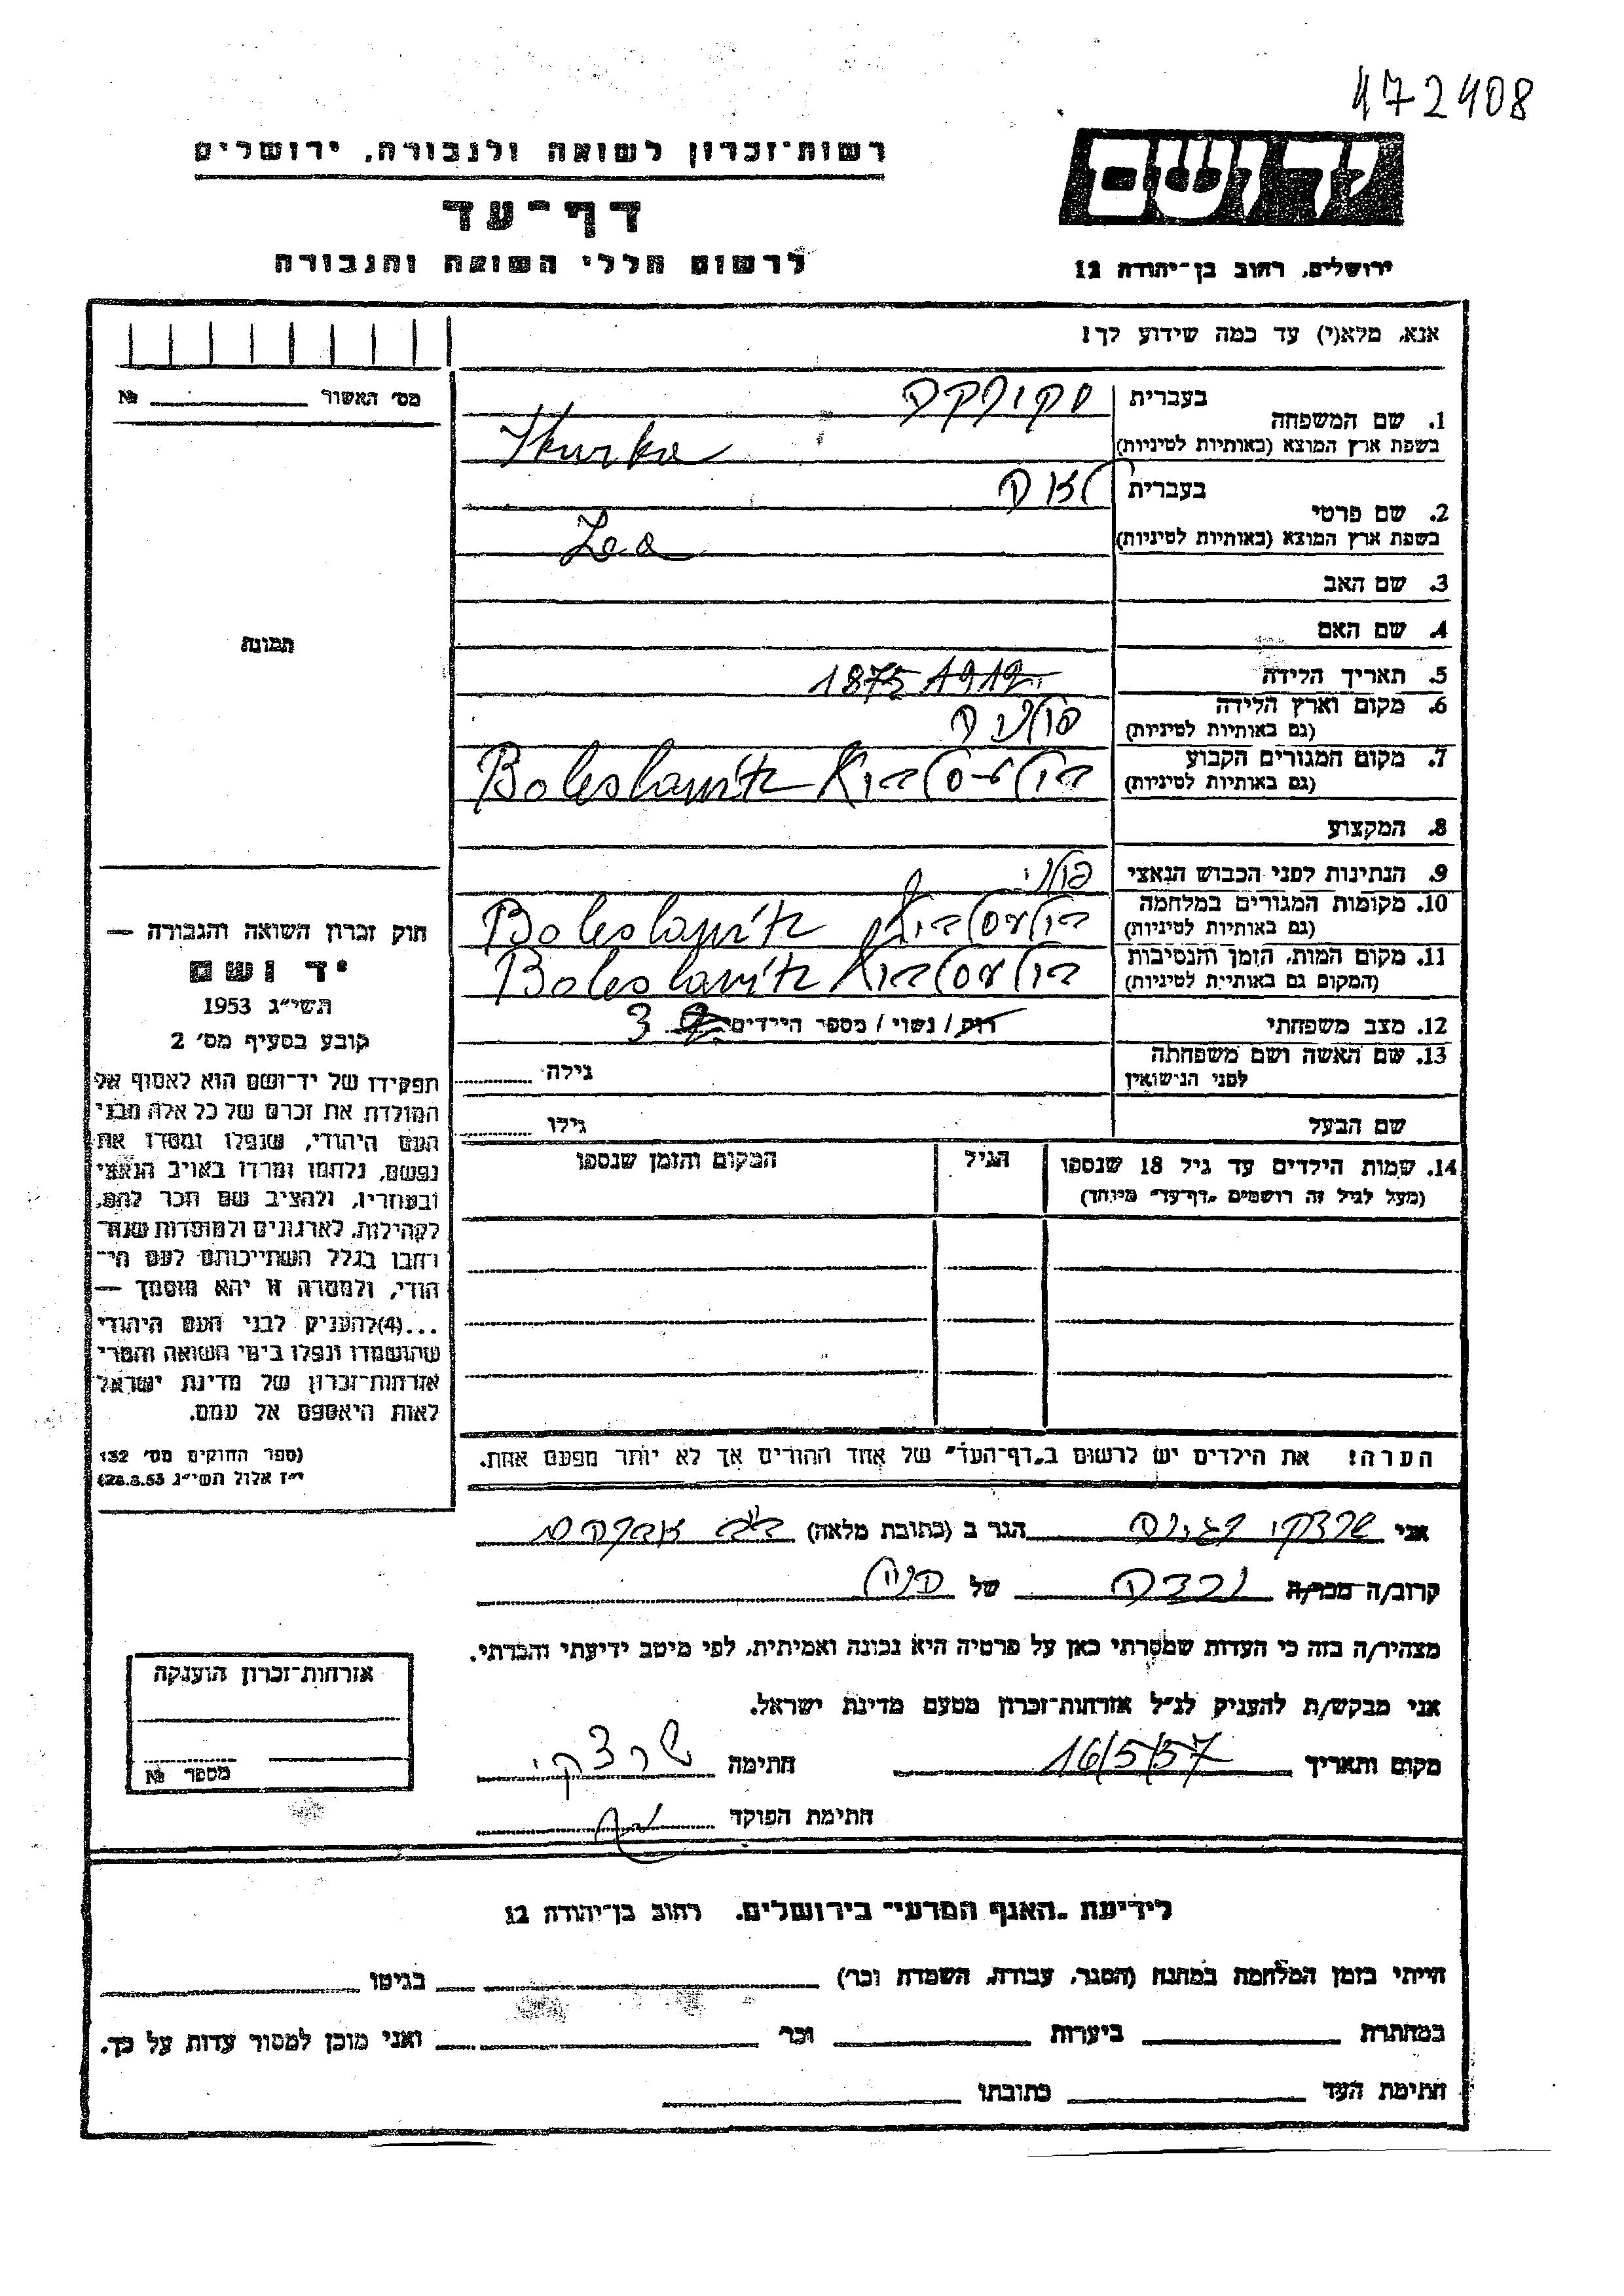 172408
רשות־זכרון לשואה ולגבורה, ירושלים
דף־עד
לרשום חללי השואה והגבורה
יד ושם
ירושלים, רחוב בן־יהודה 12
אנא, מלא(י) עד כמה שידוע לך!
מס' האשור № 
תמונה
1. שם המשפחה
בעברית סקורקה
בשפת ארץ המוצא (באותיות לטיניות) Skurka
2. שם פרטי
בעברית לאה
בשפת ארץ המוצא (באותיות לטיניות) Lea
3. שם האב
4. שם האם
5. תאריך הלידה 1912 1875
6. מקום וארץ הלידה
(גם באותיות לטיניות) פולניה
7. מקום המגורים הקבוע
(גם באותיות לטיניות) Boleslawitz
8. המקצוע
9. הנתינות לפני הכבוש הנאצי פולני
10. מקומות המגורים במלחמה
(גם באותיות לטיניות) Boleslawitz
11. מקום המות, הזמן והנסיבות
(המקום גם באותיות לטיניות) Boleslawitz
12. מצב משפחתי רוק / נשוי / מספר הילדים 3
13. שם האשה ושם משפחתה
לפני הנישואין גילה
שם הבעל גילו
14. שמות הילדים עד גיל 18 שנספו הגיל המקום והזמן שנספו
(מעל לגיל זה רושמים "דף־עד" מיוחד)
הערה! את הילדים יש לרשום ב"דף־העד" של אחד ההורים אך לא יותר מפעם אחת.
חוק זכרון השואה והגבורה —
יד ושם
תשי"ג 1953
קובע בסעיף מס' 2
תפקידו של יד־ושם הוא לאסוף אל
המולדת את זכרם של כל אלה מבני
העם היהודי, שנפלו ומסרו את
נפשם, נלחמו ומרדו באויב הנאצי
ובעוזריו, ולהציב שם וזכר להם,
לקהילות, לארגונים ולמוסדות שנח־
רבו בגלל השתייכותם לעם הי־
הודי, ולמטרה זו יהא מוסמך —
...(4) להעניק לבני העם היהודי
שהושמדו ונפלו בימי השואה והמרי
אזרחות־זכרון של מדינת ישראל
לאות היאספם אל עמם.
(ספר החוקים מס' 132
י"ז אלול תשי"ג 28.8.53)
אני הגר ב (כתובת מלאה)
קרוב/ה מכר/ה נכדה של
מצהיר/ה בזה כי העדות שמסרתי כאן על פרטיה היא נכונה ואמיתית, לפי מיטב ידיעתי והכרתי.
אני מבקש/ת להעניק לנ"ל אזרחות־זכרון מטעם מדינת ישראל.
מקום ותאריך 16/5/57 חתימה
חתימת הפוקד
אזרחות־זכרון הוענקה
מספר №
לידיעת "האגף המדעי" בירושלים, רחוב בן־יהודה 12
הייתי בזמן המלחמה במחנה (הסגר, עבודה, השמדה וכו') בגיטו
במחתרת ביערות וכו' ואני מוכן למסור עדות על כך.
חתימת העד כתובתו